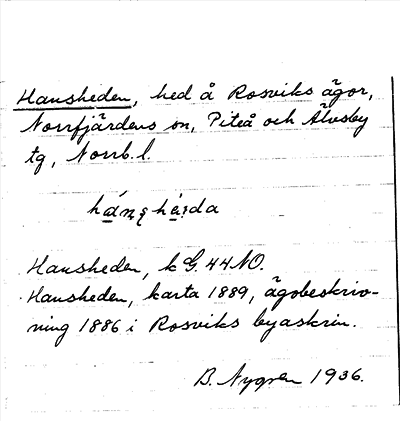 Hansheden, hed å Rosviks ägor,
Norrfjärdens sn, Piteå och Älvsby
tg, Norrb. l.
Hansheden, k G. 44 NO.
Hansheden, karta 1889, ägobeskriv-
ning 1886 i Rosviks byaskrin.
B. Nygren 1936.